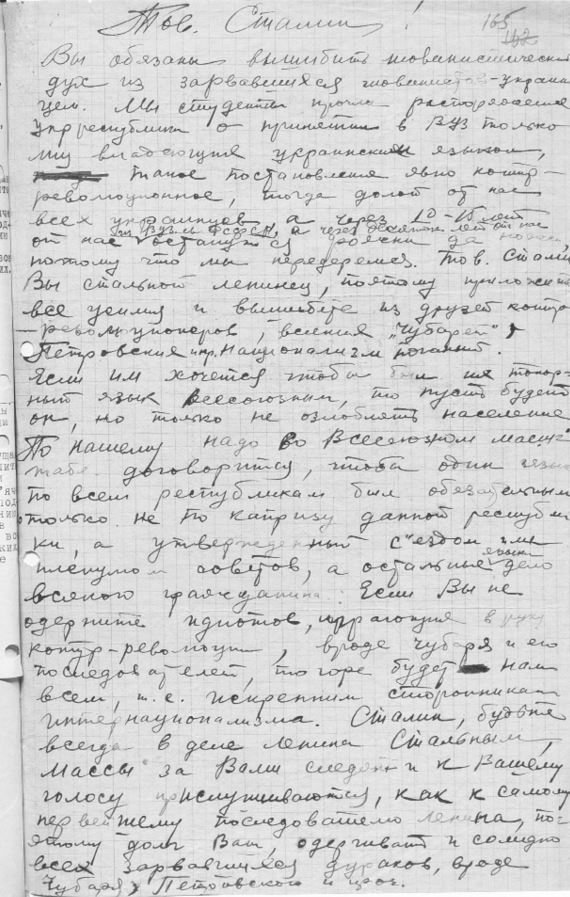 Тов. Сталин!
165
162
Вы обязаны вышибить шовинистический
дух из зарвавшихся шовинистов-украин
цев. Мы студенты прочли распоряжение
укрреспублики о принятии в ВУЗ только
владеющих украинским языком,
такое постановление явно контр-
революционное, тогда долой от нас
всех украинцев, а через 10-15 лет
из ВУЗ РСФСР, а через десяток лет от нас
от нас останутся да
потому что мы передеремся. Тов. Сталин
Вы стальной ленинец, поэтому приложите
все усилия и вышибете из друзей контр
-революционеров, всяких "Чубарей",
Петровских и пр. Национализм поганый.
Если им хочется чтобы был их
ный язык всесоюзным, то пусть будет
он, но только не озлоблять население
По нашему надо во Всесоюзном масш-
табе договориться, чтобы один язык
по всем республикам был обязательным
только не по капризу данной республи
ки, а утвержденный с"ездом или
языки
пленумом советов, а остальные дело
всякого гражданина. Если Вы не
одержите идиотов, играющих в руку
контр-революции, вроде Чубаря и его
последователей, то горе будет нам
всем, т.е. искренним сторонникам
интернационализма. Сталин, будьте
всегда в деле Ленина Стальным,
массы за Вами следят и к Вашему
голосу прислушиваются, как к самому
первейшему последователю Ленина, поэ-
тому долг Ваш, одергивать и солидно
всех зарвавшихся дураков, вроде
Чубаря, Петровского и проч.